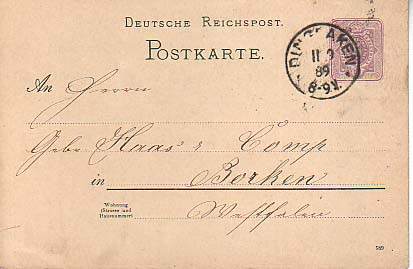 DEUTSCHE REICHSPOST.
POSTKARTE.
DINSLAKEN
89
8-9V.
An Herrn
Gebr. Haas & Comp
in Borken
Wohnung
(Strasse und
Hausnummer)
Westfalen